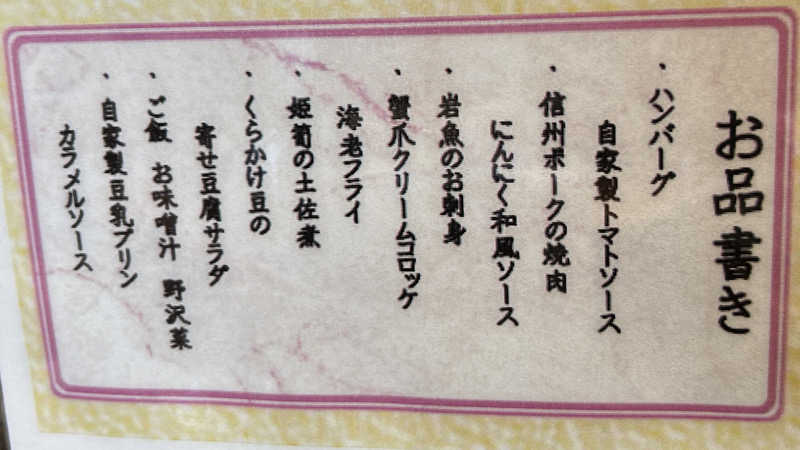 お品書き
・ハンバーグ
自家製トマトソース
・信州ポークの焼肉
にんにく和風ソース
・岩魚のお刺身
・蟹爪クリームコロッケ
海老フライ
・姫筍の土佐煮
・くらかけ豆の
寄せ豆腐サラダ
・ご飯 お味噌汁 野沢菜
・自家製豆乳プリン
カラメルソース